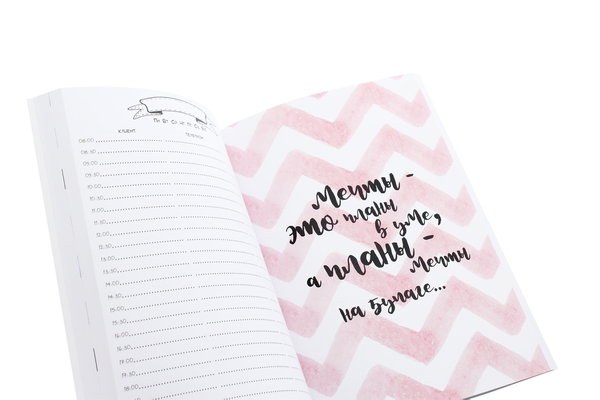 Пн Вт Ср Чт Пт Сб Вс
КЛИЕНТ
08:00
08:30
09:00
09:30
10:00
10:30
11:00
11:30
12:00
12:30
13:00
13:30
14:00
14:30
15:00
15:30
16:00
16:30
17:00
17:30
18:00
Мечты -
это планы
в уме,
а планы -
Мечты
на бумаге...